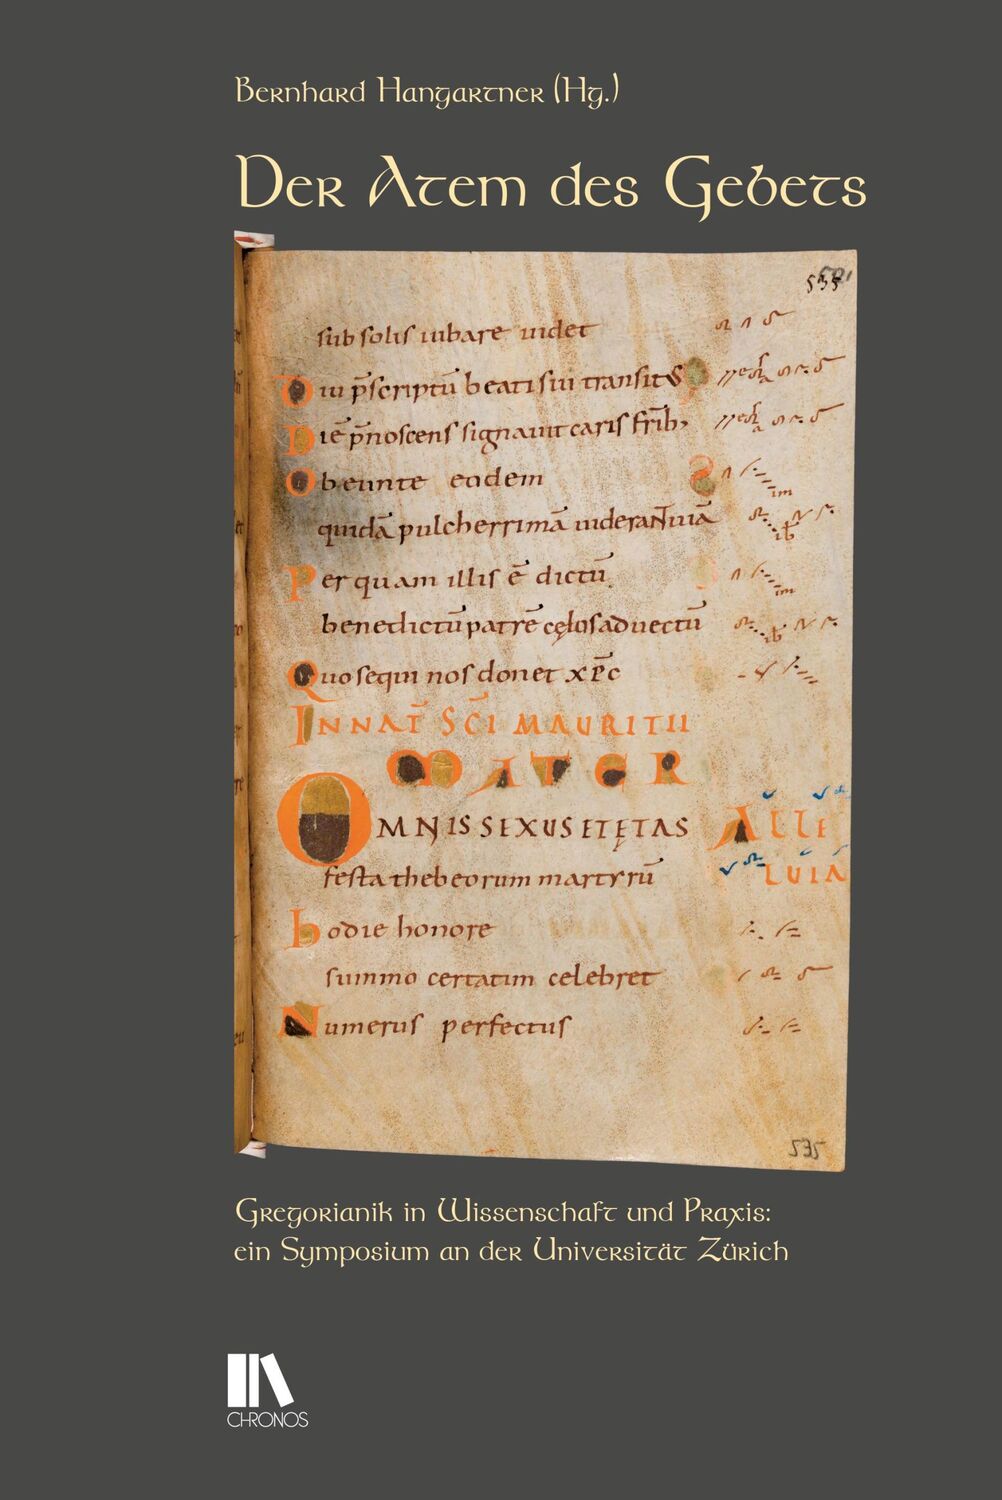 Bernhard Hangartner (Hg.)
Der Atem des Gebets
535
sub solis iubare uidet
Diu p̄scriptū beati sui transitꝰ
Diē p̄noscens signauit caris fr̄ib;
Obeunte eodem
quidā pulcherrimā uiderant uiā
im
Per quam illis ē dictū
benedictū patrē cęlos aduectū
im
Quo sequi nos donet xp̄c
IN NAT̄ SC̄I MAURITII
MATER
OMNIS SEXUS ET ĘTAS ALLE
festa thebeorum martyrū LUIA
hodie honore
summo certatim celebret
Numerus perfectus
535
Gregorianik in Wissenschaft und Praxis:
ein Symposium an der Universität Zürich
CHRONOS